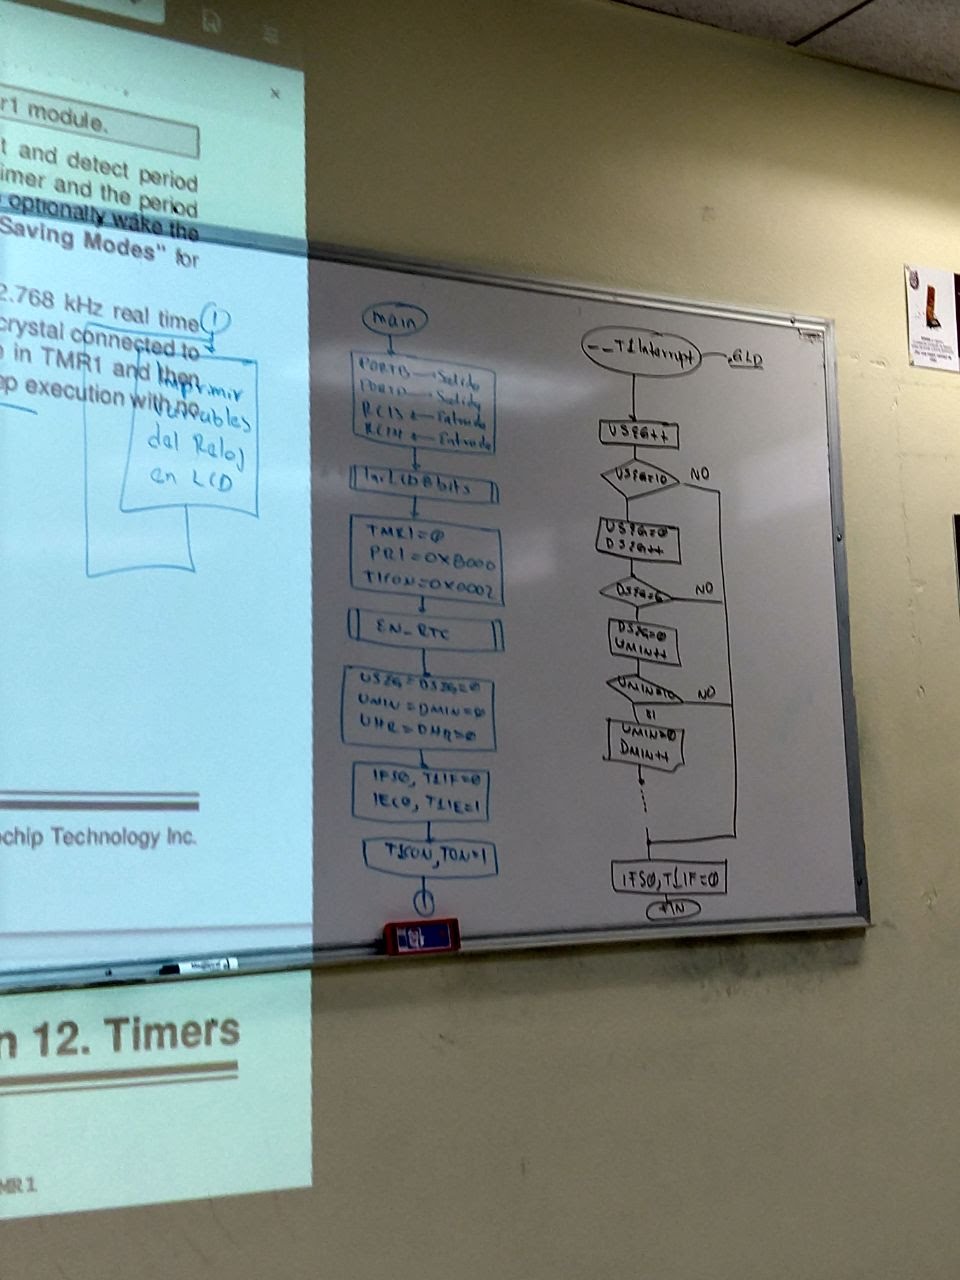 r1 module.
t and detect period
imer and the period
optionally wake the
Saving Modes" for
2.768 kHz real time
crystal connected to
in TMR1 and then
ep execution with no
1
Imprimir
variables
del Reloj
en LCD
ochip Technology Inc.
n 12. Timers
MR1
main
PORTB → Salida
PORTD → Salida
RC13 ← Entrada
RC14 ← Entrada
IniLCD8bits
TMR1=0
PR1=0X8000
T1CON=0X0002
EN_RTC
USEG=DSEG=0
UMIN=DMIN=0
UHR=DHR=0
IFS0, T1IF=0
IEC0, T1IE=1
T1CON, TON=1
1
__T1Interrupt
.GLD
USEG++
USEG=10
NO
USEG=0
DSEG++
DSEG=6
NO
DSEG=0
UMIN++
UMIN=10
NO
SI
UMIN=0
DMIN++
IFS0, T1IF=0
FIN